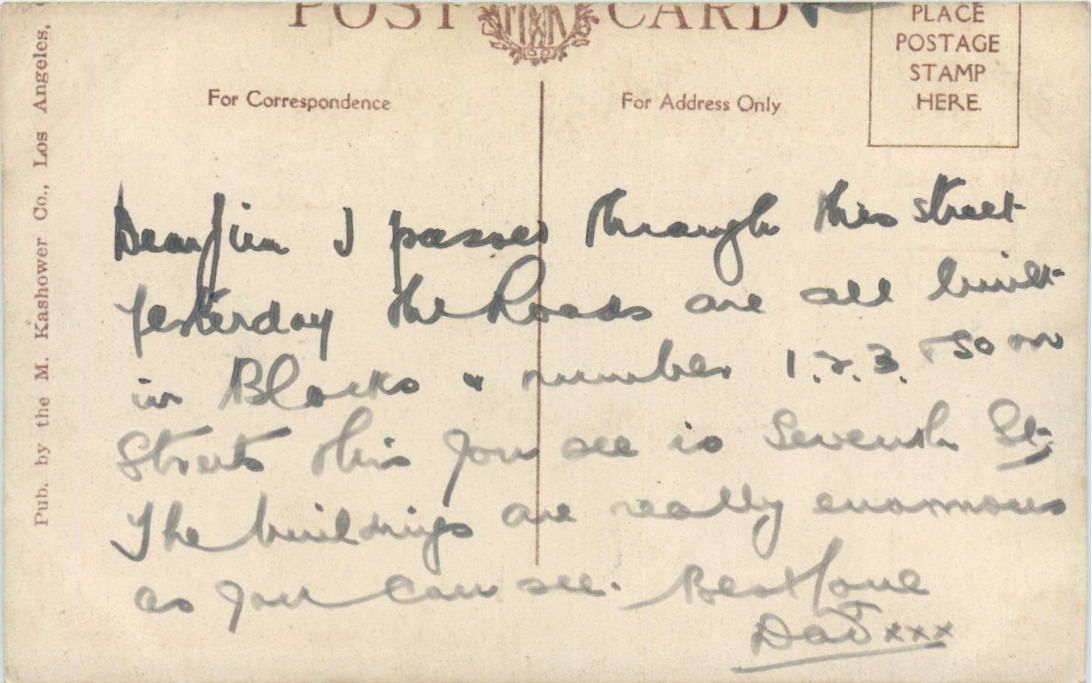 POST CARD
PLACE
POSTAGE
STAMP
HERE.
For Correspondence
For Address Only
Pub. by the M. Kashower Co., Los Angeles,
Dear Jim I passed through this street
yesterday the Roads are all built
in Blocks & number 1.2.3. & so on
Streets this you see is Seventh St.
The buildings are really enormous
as you can see. Best love
Dad xxx